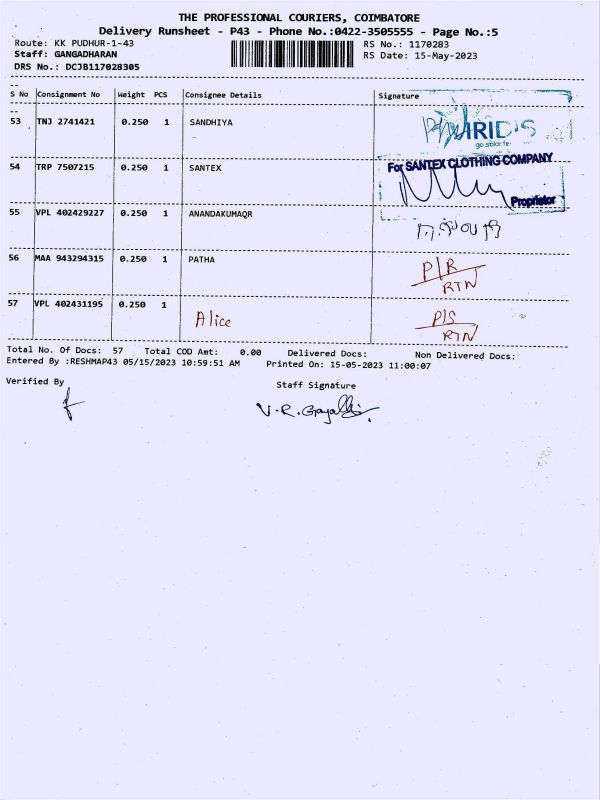 THE PROFESSIONAL COURIERS, COIMBATORE
Delivery Runsheet - P43 - Phone No.:0422-3505555 - Page No.:5
Route: KK PUDHUR-1-43
RS No.: 1170283
Staff: GANGADHARAN
RS Date: 15-May-2023
DRS No.: DCJB117028305
S No Consignment No Weight PCS Consignee Details Signature
53 TNJ 2741421 0.250 1 SANDHIYA
go.solar.
For SANTEX CLOTHING COMPANY
54 TRP 7507215 0.250 1 SANTEX
Proprietor
55 VPL 402429227 0.250 1 ANANDAKUMAQR
56 MAA 943294315 0.250 1 PATHA P/R
RTN
57 VPL 402431195 0.250 1 Alice P/S
RTN
Total No. Of Docs: 57 Total COD Amt: 0.00 Delivered Docs: Non Delivered Docs:
Entered By :RESHMAP43 05/15/2023 10:59:51 AM Printed On: 15-05-2023 11:00:07
Verified By Staff Signature